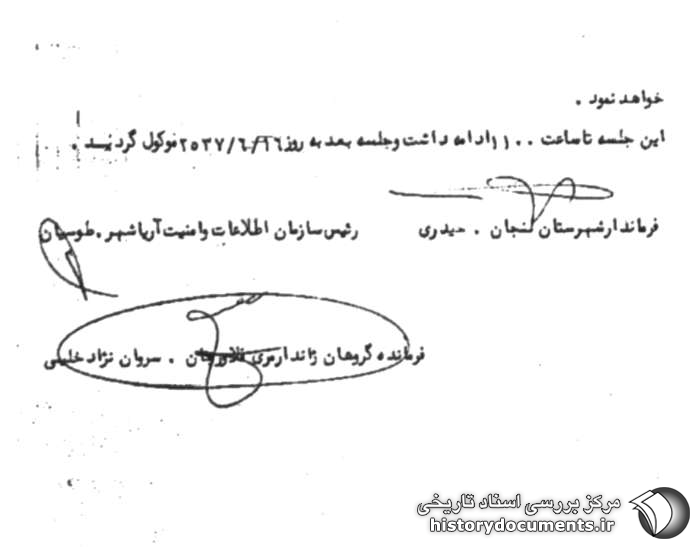 خواهد نمود .
این جلسه تا ساعت ۱۱۰۰ ادامه داشت و جلسه بعد به روز ۲۵۳۷/۶/۲۶ موکول گردید .
فرماندار شهرستان لنجان . حیدری
رئیس سازمان اطلاعات و امنیت آریاشهر . طوسیان
فرمانده گروهان ژاندارمری فلاورجان . سروان نژاد خلیلی
مرکز بررسی اسناد تاریخی
historydocuments.ir